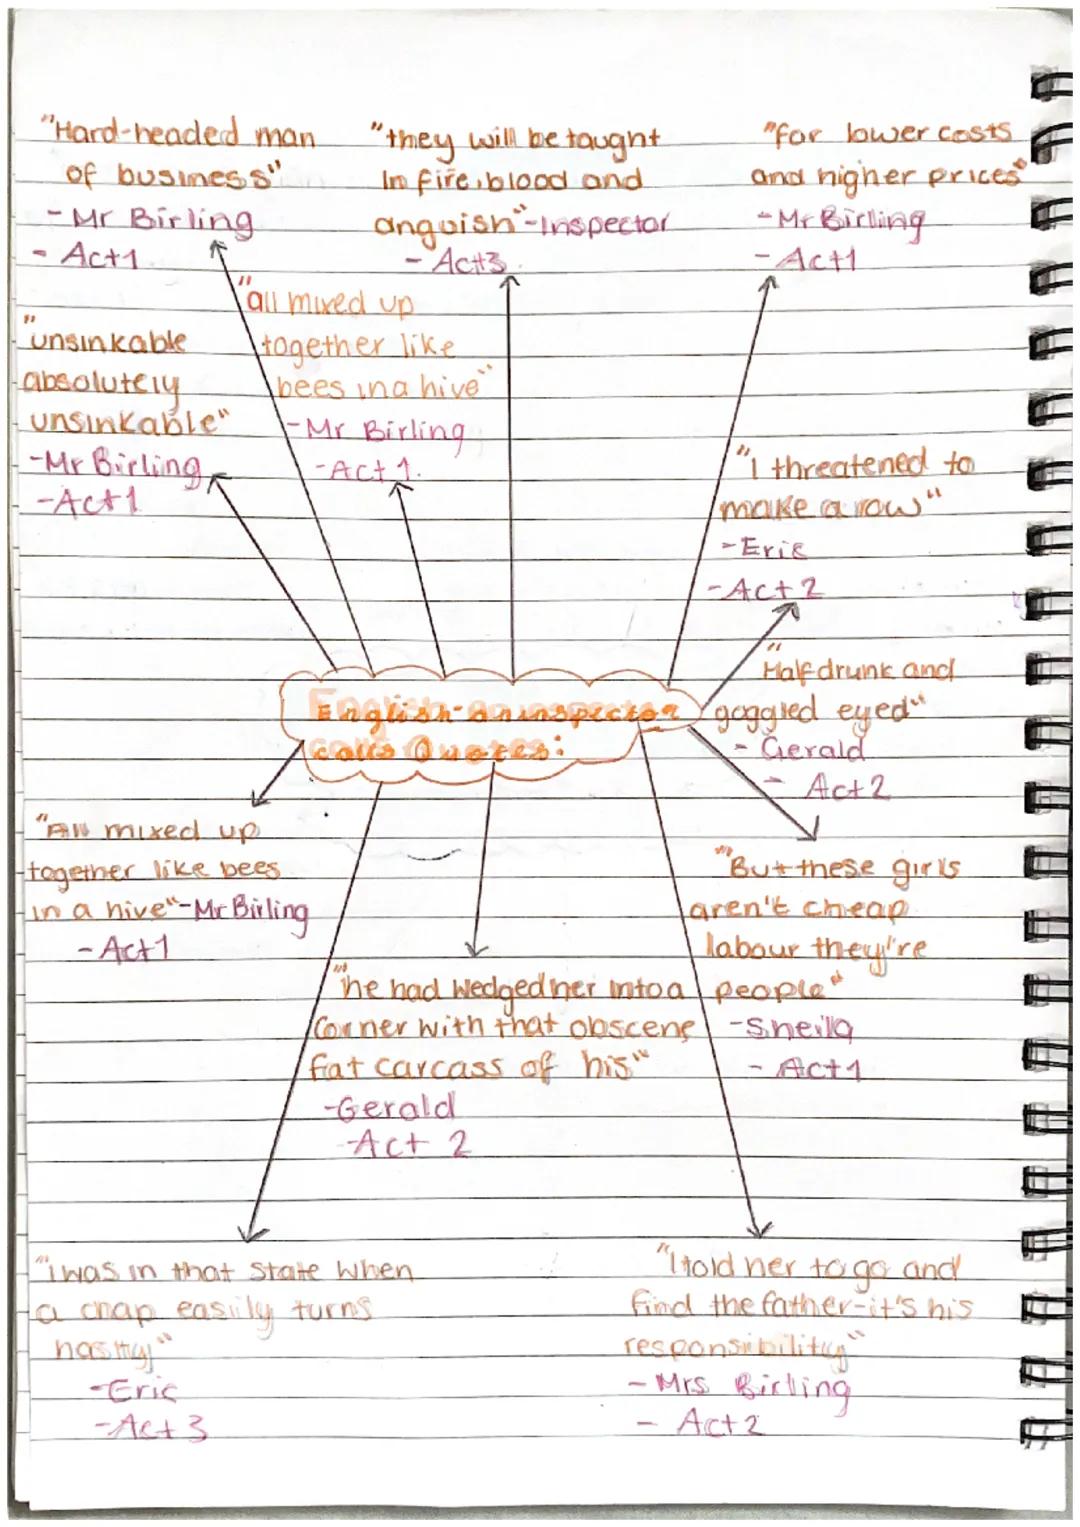 "Hard-headed man
of business"
- Mr Birling
- Act1
"they will be taught
in fire, blood and
anguish"-Inspector
- Act3.
"for lower costs
and higher prices"
- Mr Birling
- Act1
"all mixed up
together like
bees in a hive"
- Mr Birling
- Act 1.
"unsinkable
absolutely
unsinkable"
- Mr Birling
- Act1
"I threatened to
make a row"
- Eric
- Act 2
"Half drunk and
goggled eyed"
- Gerald
- Act 2
English-an inspector
calls Quotes:
"All mixed up
together like bees
in a hive"-Mr Birling
- Act1
"But these girls
aren't cheap
labour they're
people"
- Sheila
- Act1
"he had wedged her into a
corner with that obscene
fat carcass of his"
- Gerald
- Act 2
"i was in that state when
a chap easily turns
nasty"
- Eric
- Act 3
"I told her to go and
find the father-it's his
responsibility"
- Mrs Birling
- Act 2